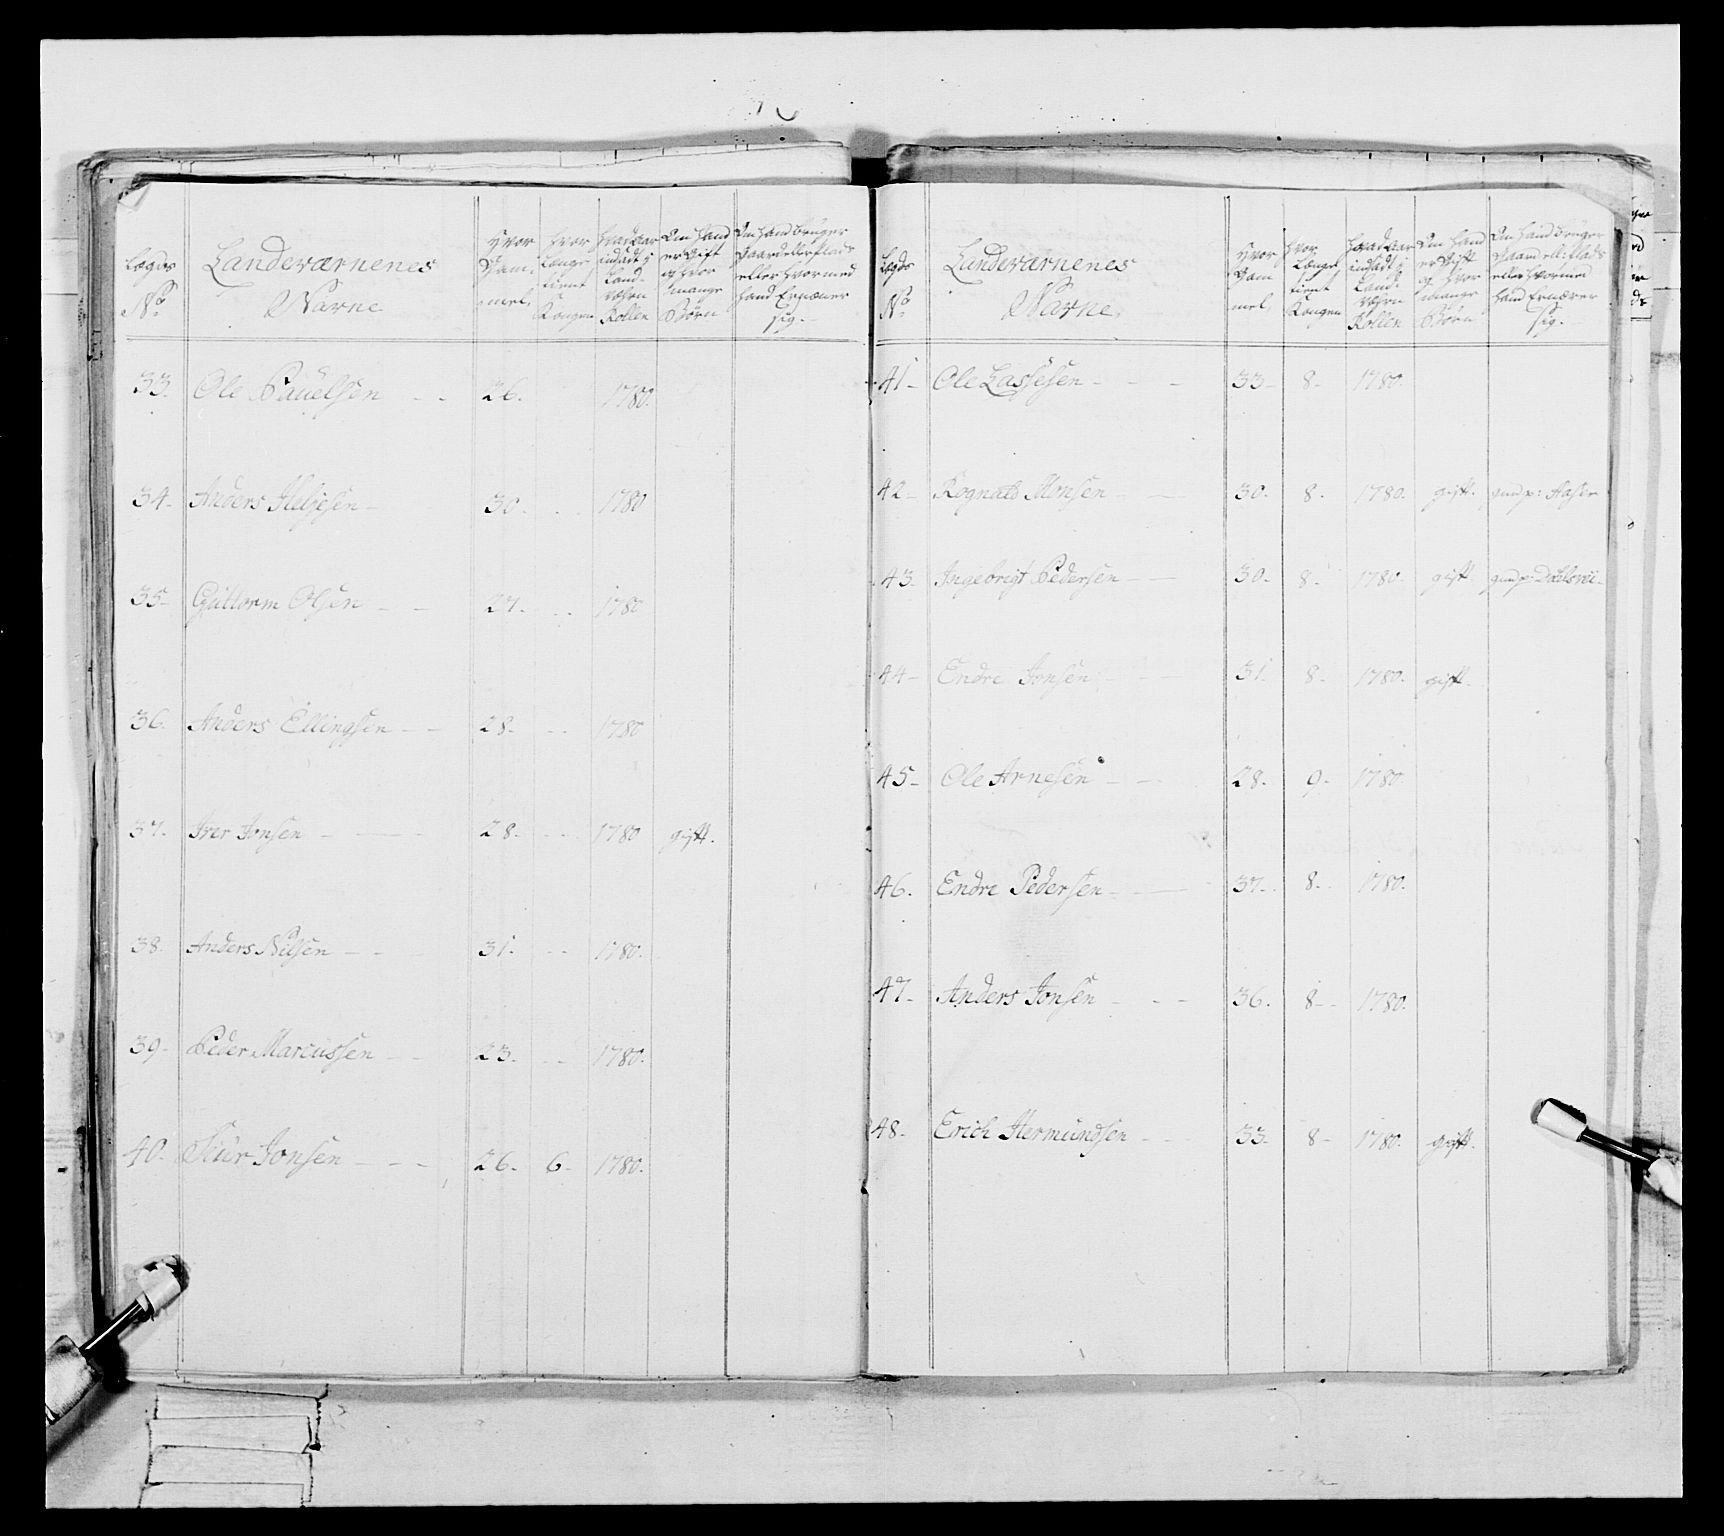 Lægds
No
Landeværnenes
Navne
Hvor
Gam
mel,
hvor
Længe
tient
Kongen
hvad Aar
indsadt i
Land-
væhrn
Rollen
Om hand
er Gift
og hvor
mange
Børn
Om hand bruger
Gaard eller Plads
eller hvormed
hand Ernærer
sig.
33. Ole Pauelsen - - 26. 1780.
34- Anders Helgesen - 30. . . 1780
35- Guttorm Olsen - - 27. . . 1780
36. Anders Ellingsen - - 28. - - 1780
37. Iver Jonsen - - - 28. - - 1780 gift.
38. Anders Nilsen - - - 31. - - 1780.
39- Peder Marcussen - - 23. - - 1780.
40. Siur Jonsen - - - 26. 6. 1780.
Lægds
No
Landeværnenes
Navne
Hvor
Gam
mel,
hvor
Længe
tient
Kongen
hvad Aar
indsadt i
Land-
væhrn
Rollen
Om hand
er Gift
og hvor
mange
Børn
Om hand bruger
Gaard ell: Plads
eller hvormed
hand Ernærer
sig.
41- Ole Lassesen - - - 33- 8- 1780.
42- Rognald Monsen - - 30. 8. 1780. gift.
43. Ingebrigt Pedersen - - 30. 8. 1780. gift
44- Endre Jonsen - - - 31. 8. 1780. gift.
45- Ole Arnesen - - 28. 9. 1780
46. Endre Pedersen - - 37. 8. 1780.
47- Anders Jonsen - - - 36. 8- 1780.
48. Erich Hermundsen - - 33. 8- 1780. gift.